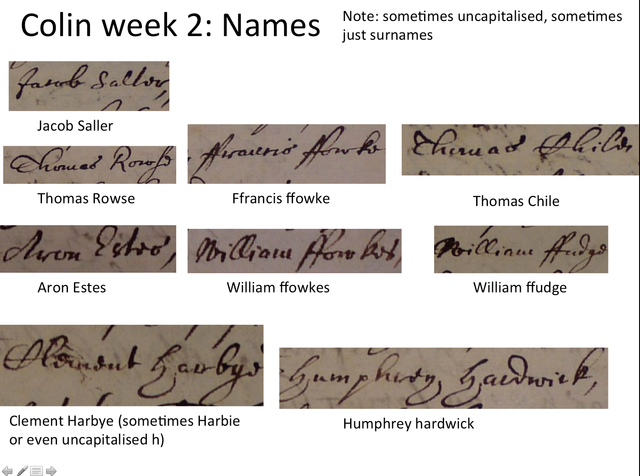 Colin week 2: Names
Note: sometimes uncapitalised, sometimes
just surnames
Jacob Saller,
Jacob Saller
Thomas Rowse
ffrancis ffowke
Thomas Chile
Thomas Rowse
Ffrancis ffowke
Thomas Chile
Aron Estes,
William ffowkes,
William ffudge
Aron Estes
William ffowkes
William ffudge
Clement Harbye
Humphrey Hardwick,
Clement Harbye (sometimes Harbie
or even uncapitalised h)
Humphrey hardwick